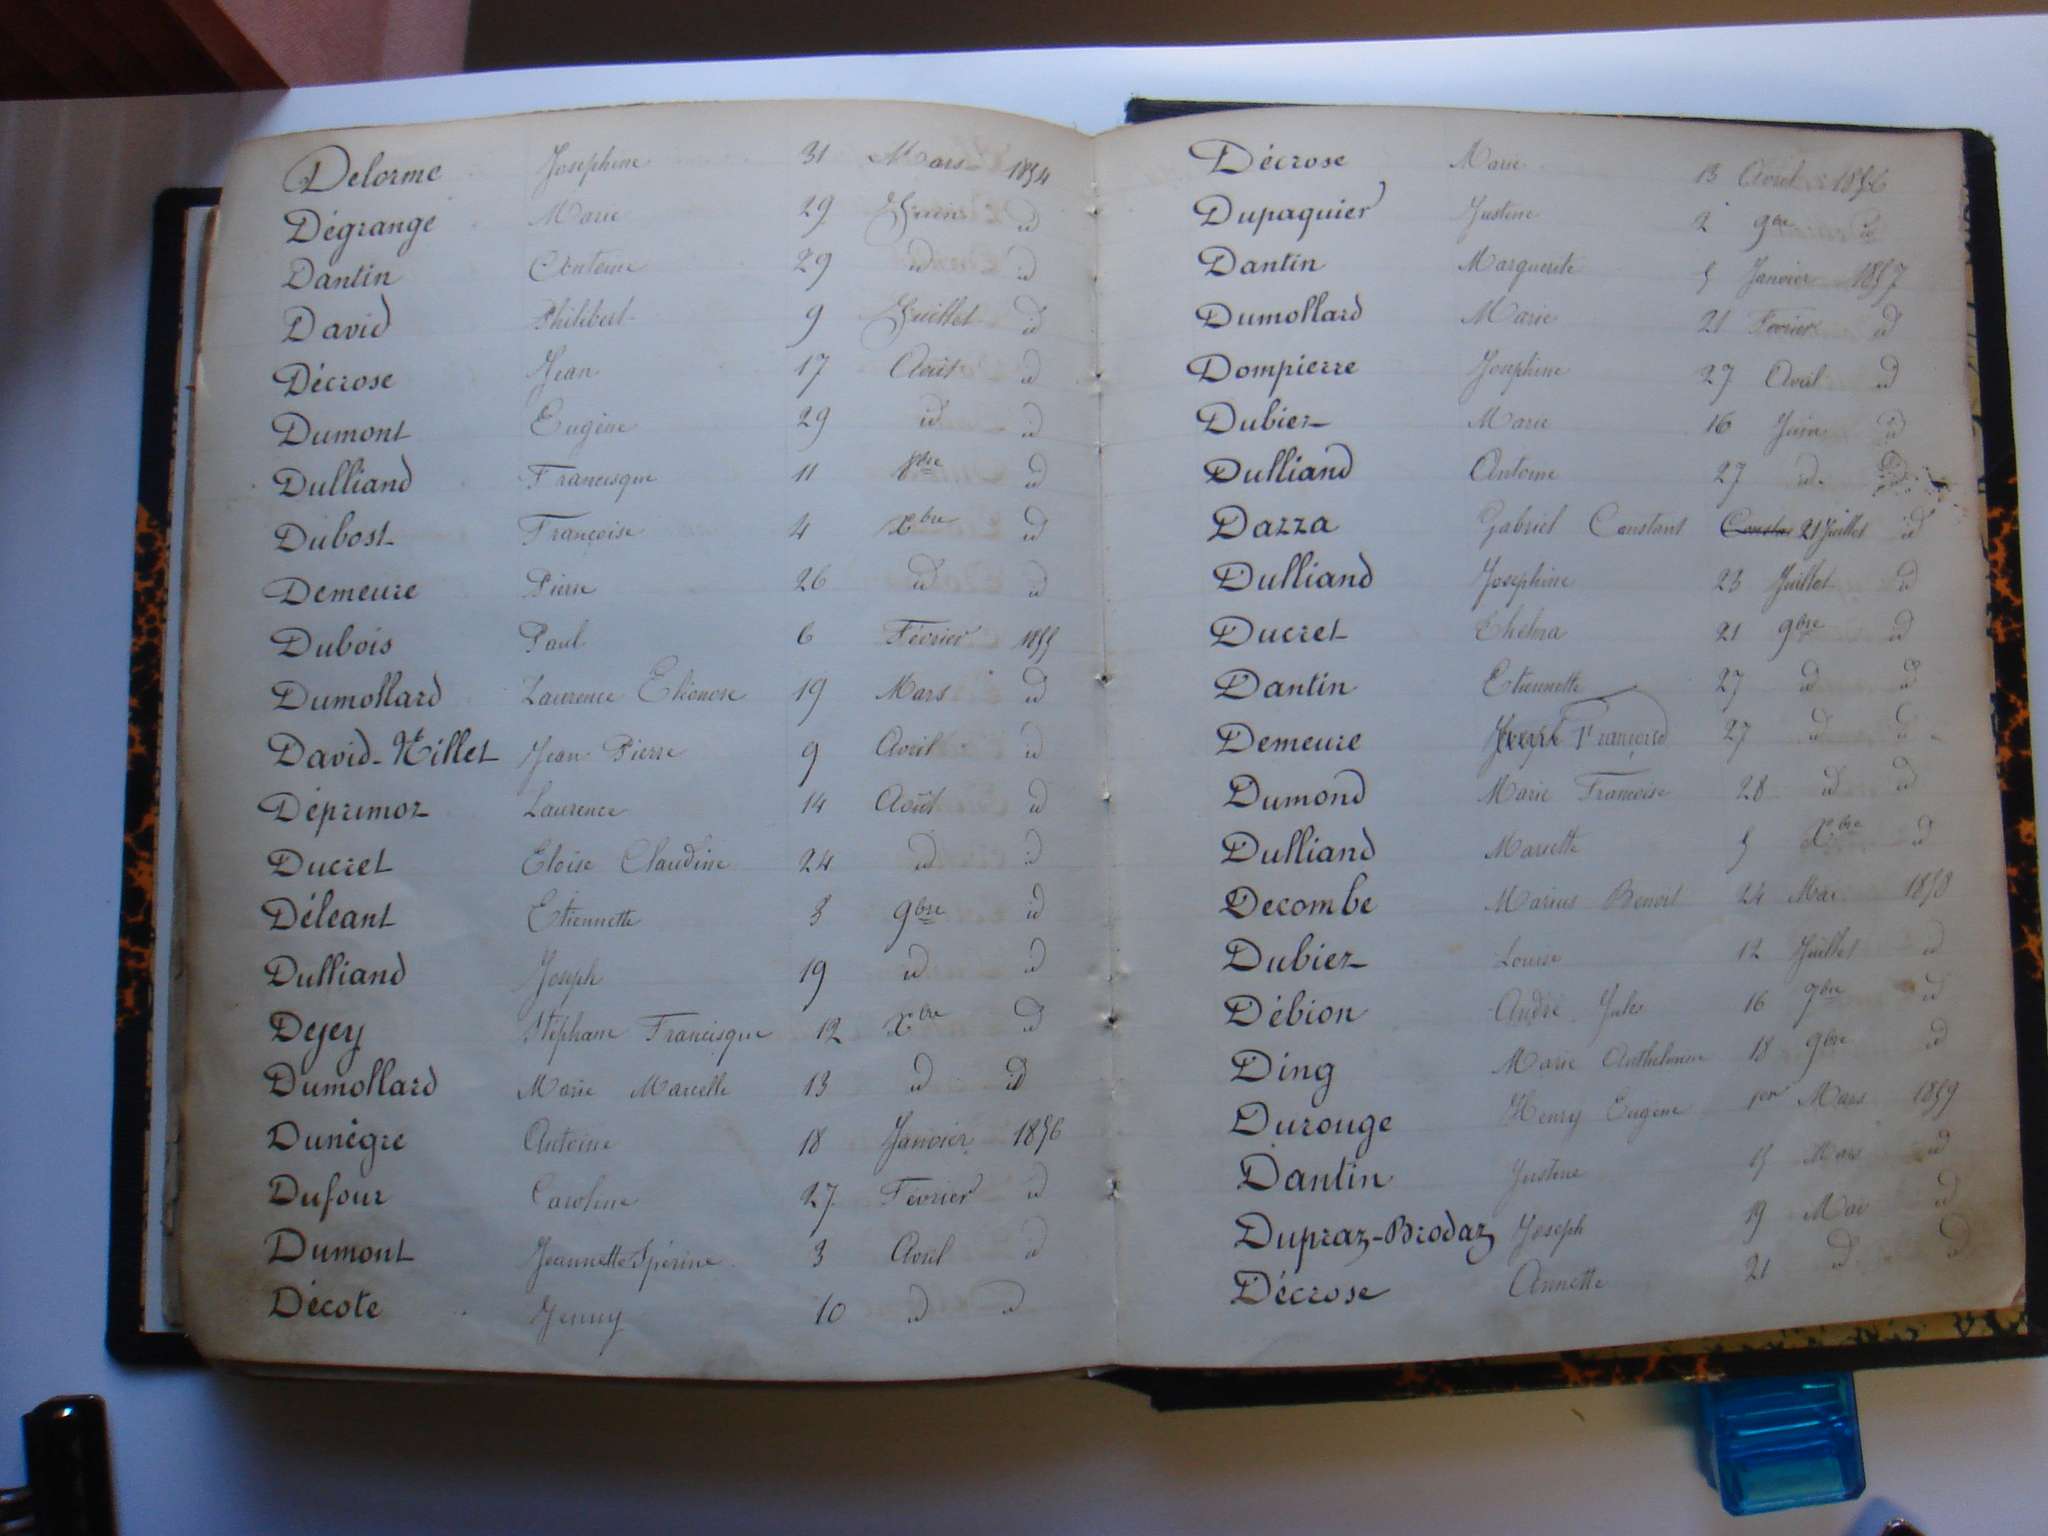 Delorme Josephine 31 Mars 1854
Dégrange Marie 29 Juin id
Dantin Antoine 29 id id
David Philibert 9 Juillet id
Décrose Jean 17 Août id
Dumont Eugène 29 id id
Dulliand Francisque 11 id
Dubost Françoise 4 Xbre id
Demeure Pierre 26 id id
Dubois Paul 6 Février 1855
Dumollard Laurence Eléonore 19 Mars id
David-Nillet Jean Pierre 9 Avril id
Déprimoz Laurence 14 Août id
Ducret Eloïse Claudine 24 id id
Déléant Etiennette 3 9bre id
Dulliand Joseph 19 id id
Dejey Stéphane Francisque 12 Xbre id
Dumollard Marie Marcelle 13 id id
Dunègre Antoine 18 Janvier 1856
Dufour Caroline 27 Février id
Dumont Jeannette 3 Avril id
Décote Jenny 10 id id
Décrose Marie 13 Avril 1856
Dupaquier Justine 2 9bre id
Dantin Marguerite 5 Janvier 1857
Dumollard Marie 21 Février id
Dompierre Josephine 27 Avril id
Dubiez Marie 16 Juin id
Dulliand Antoine 27 id id
Dazza Gabriel Constant 21 Juillet id
Dulliand Josephine 23 Juillet id
Ducret 21 9bre id
Dantin Etiennette 27 id id
Demeure François 27 id id
Dumond Marie Françoise 28 id id
Dulliand Mariette 5 Xbre id
Decombe Marius Benoit 24 Mai 1858
Dubiez Louise 12 Juillet id
Débion André Jules 16 id
Ding Marie Anthelmine 18 9bre id
Durouge Henry Eugène 1er Mars 1859
Dantin Justine 15 Mars id
Dupraz-Brodaz Joseph 19 Mai id
Décrose Annette 21 id id